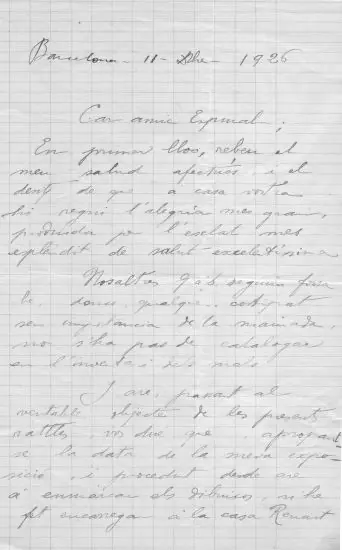 Barcelona - 11 - Dbre - 1926
Car amic Espinal;
En primer lloc, rebeu el
meu salud afectuós, i el
de que a casa vostra
hi regni l'alegria mes gran,
produida per l'esclat mes
esplèndit de salut excelentisima
Nosaltres
la qualque
sen importancia de la mainada,
no s'ha pas de catalogar
en l'inventari dels mals
I are, passant al
vertader objecte de les presents
ratlles, vos dire que apropant-
se la data de la meva expo-
sició, i procedint desde are
a enmarcar els dibuixos, n'he
fet encarrega a la casa Renart